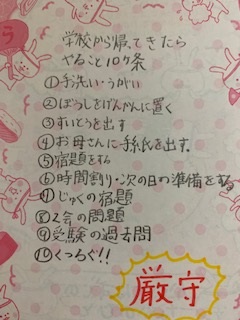 学校から帰ってきたら
やること10ヶ条
①手洗い・うがい
②ぼうしをげんかんに置く
③すいとうを出す
④お母さんに手紙を出す
⑤宿題をする
⑥時間割り・次の日の準備をする
⑦じゅくの宿題
⑧Z会の問題
⑨受験の過去問
⑩くつろぐ!!
厳守